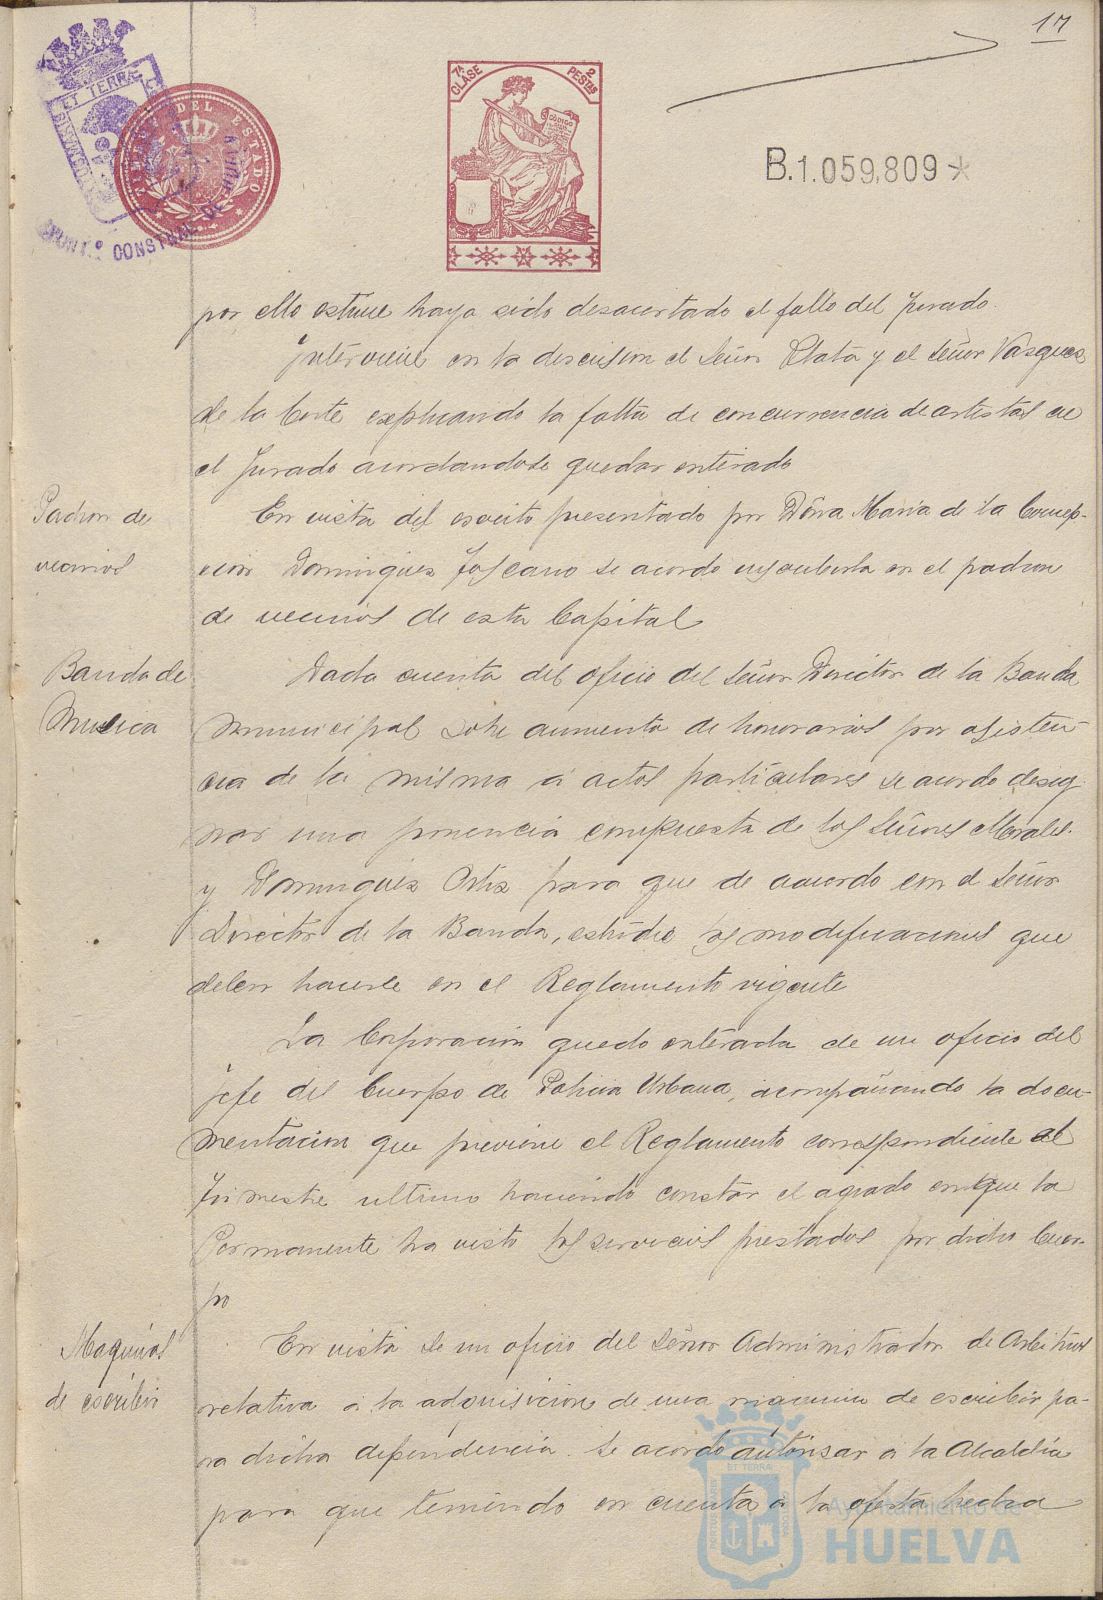 17
7ª CLASE
2 PESTAS
CÓDIGO
B.1.059,809*
ET TERRÆ
DEL ESTADO
CONSTNAL DE
por ello estime haya sido desacertado el fallo del Jurado.
Interviene en la discusion el Señor Plata y el Señor Vasquez
de la Corte explicando la falta de concurrencia de artistas en
el Jurado acordandose quedar enterado
Padron de
vecinos
En vista del escrito presentado por Doña Maria de la Concep-
cion Dominguez Toscano se acordo inscribirla en el padron
de vecinos de esta Capital
Banda de
Musica
Dada cuenta del oficio del Señor Director de la Banda
municipal sobre aumento de honorarios por asisten-
cia de la misma á actos particulares se acordo desig-
nar una ponencia compuesta de los Señores Morales
y Dominguez Ortiz para que de acuerdo con el Señor
Director de la Banda, estudie las modificaciones que
deben hacerle en el Reglamento vigente
La Corporacion quedo enterada de un oficio del
Jefe del Cuerpo de Policia Urbana, acompañando la docu-
mentacion que previene el Reglamento correspondiente al
trimestre ultimo haciendo constar el agrado con que la
Permanente ha visto los servicios prestados por dicho Cuer-
po
Maquinas
de escribir
En vista de un oficio del Señor Administrador de Arbitrios
relativa a la adquisicion de una maquina de escribir pa-
ra dicha dependencia se acordo autorisar a la Alcaldia
para que teniendo en cuenta a la oferta hecha
Ayuntamiento de
HUELVA